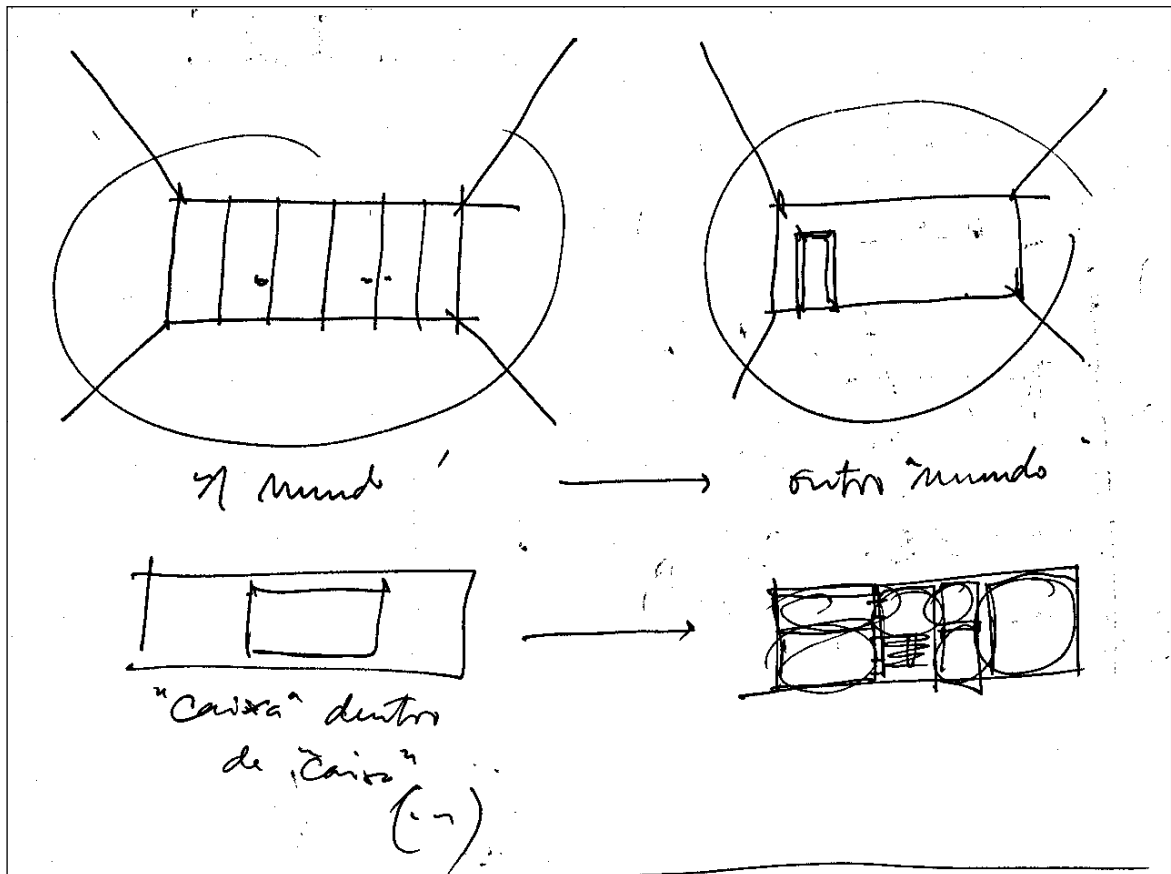 mundo
outro "mundo
"Caixa" dentro
de "Caixa"